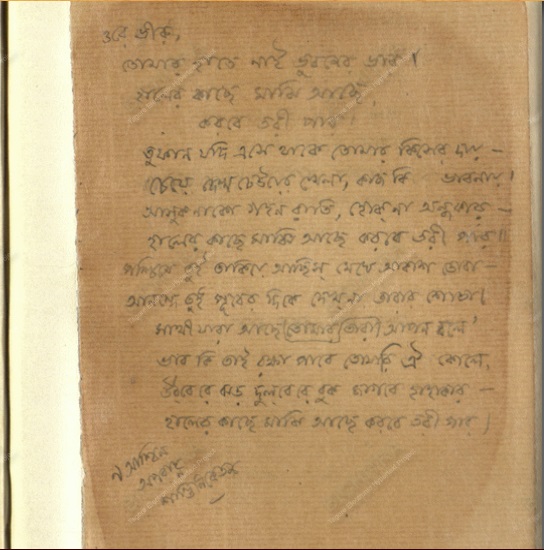 ওরে ভীরু,
তোমার হাতে নাই ভুবনের ভার।
হালের কাছে মাঝি আছে
করবে তরী পার।
তুফান যদি এসে থাকে তোমার কিসের দায় —
চেয়ে দেখ ঢেউয়ের খেলা, কাজ কি ভাবনায়।
আসুক নাকো গহন রাতি, হোক না অন্ধকার —
হালের কাছে মাঝি আছে করবে তরী পার॥
পশ্চিমে তুই তাকিয়ে আছিস মেঘে আকাশ ডোবা
আনন্দে তুই পূবের দিকে দেখনা তারার শোভা।
সাথী যারা আছে তোমার তারা আপন বলে'
ভাব কি তাই রক্ষা পাবে তোমারি ঐ কোলে,
উঠবে রে ঝড় দুলবে রে বুক জাগবে হাহাকার —
হালের কাছে মাঝি আছে করবে তরী পার।
৭ আশ্বিন
অপরাহ্ণ
শান্তিনিকেতন